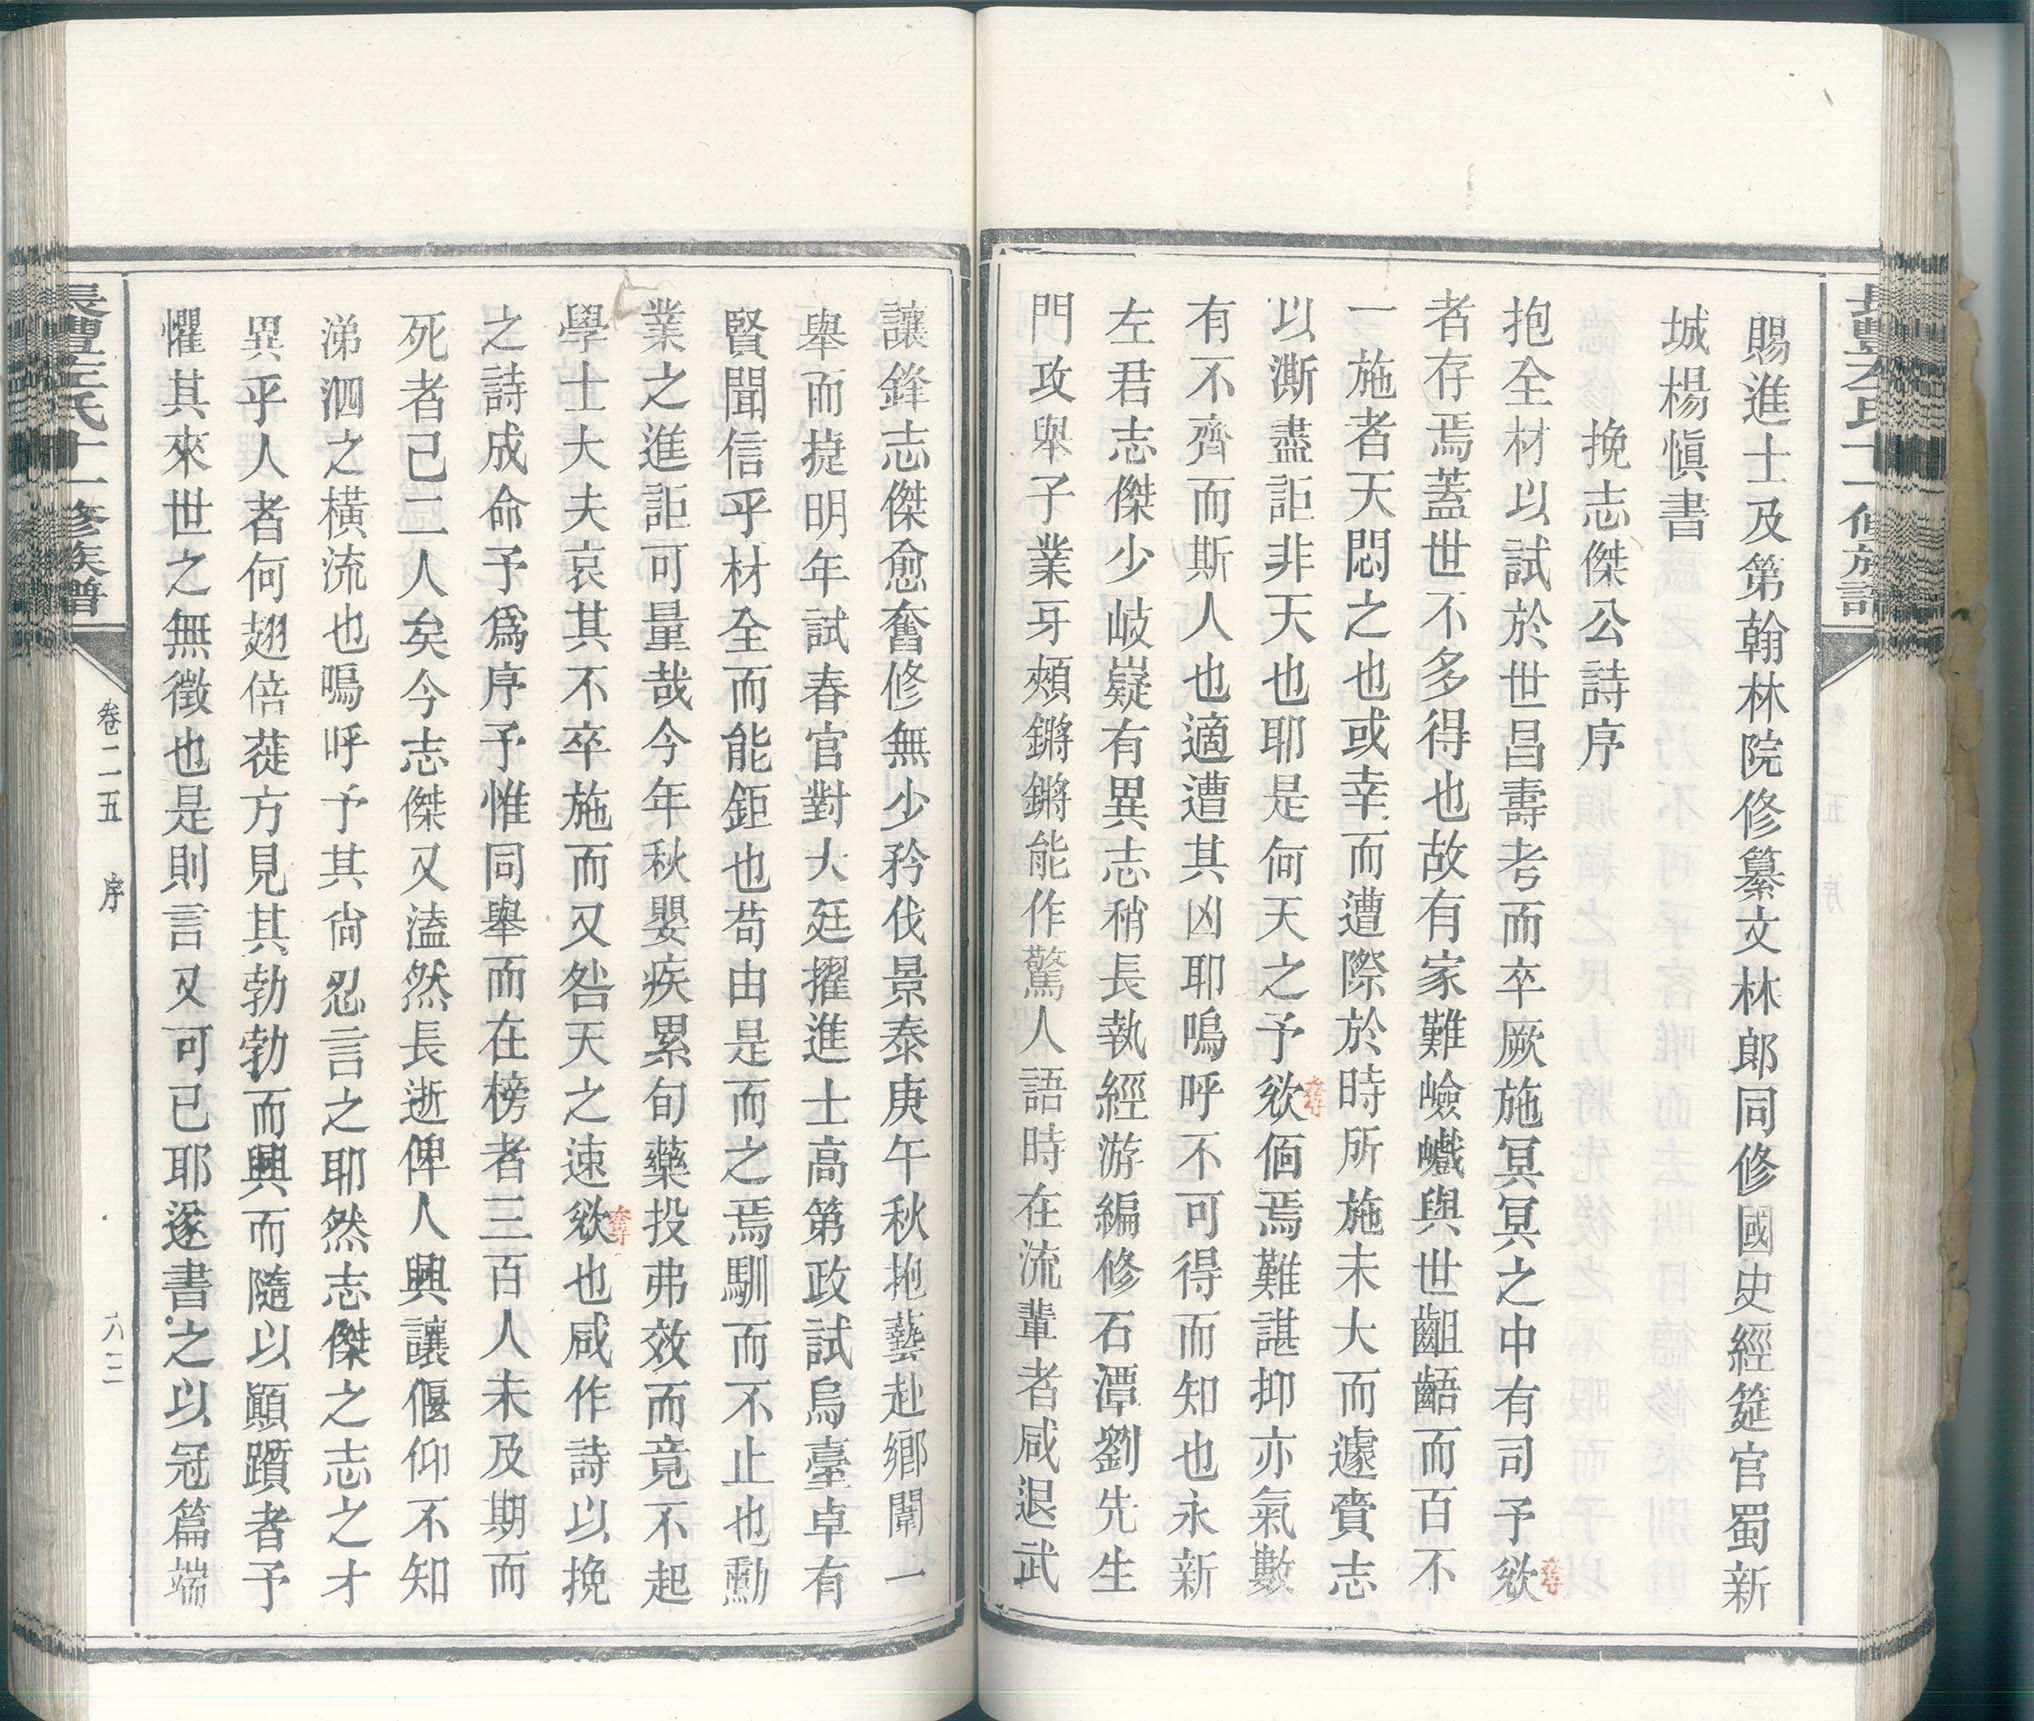 長豐左氏十一修族譜
賜進士及第翰林院修纂文林郎同修國史經筵官蜀新
城楊慎書
挽志傑公詩序
抱全材以試於世昌壽考而卒厥施冥冥之中有司予欲
奪
者存焉蓋世不多得也故有家難嶮巇與世齟齬而百不
一施者天悶之也或幸而遭際於時所施未大而遽賫志
以澌盡詎非天也耶是何天之予欲個焉難諶抑亦氣數
奪
有不齊而斯人也適遭其凶耶嗚呼不可得而知也永新
左君志傑少岐嶷有異志稍長執經游編修石潭劉先生
門攻舉子業牙頰鏘鏘能作驚人語時在流輩者咸退武
讓鋒志傑愈奮修無少矜伐景泰庚午秋抱藝赴鄉闈一
舉而捷明年試春官對大廷擢進士高第政試烏臺卓有
賢聞信乎材全而能鉅也苟由是而之焉馴而不止也勳
業之進詎可量哉今年秋嬰疾累旬藥投弗效而竟不起
學士大夫哀其不卒施而又咎天之速欲也咸作詩以挽
奪
之詩成命予爲序予惟同舉而在榜者三百人未及期而
死者已二人矣今志傑又溘然長逝俾人興讓偃仰不知
涕泗之橫流也嗚呼予其尙忍言之耶然志傑之志之才
異乎人者何翅倍蓰方見其勃勃而興而隨以顚躓者予
懼其來世之無徵也是則言又可已耶遂書之以冠篇端
長豐左氏十一修族譜
卷二五 序
八三